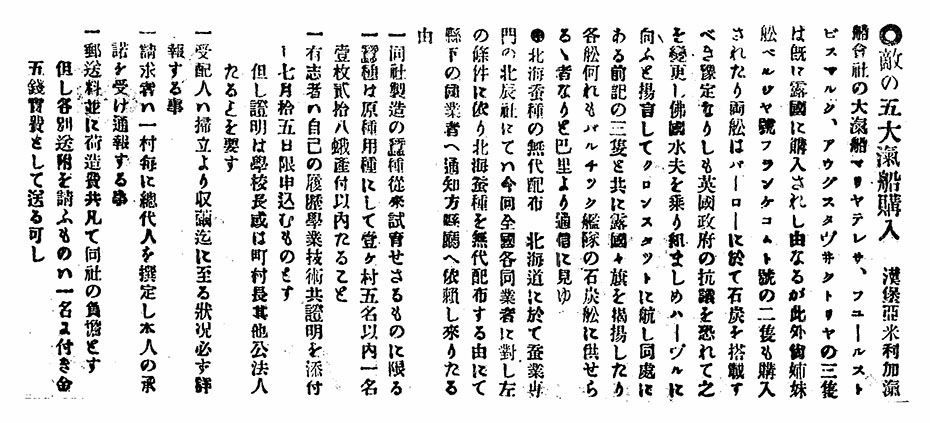 ◎敵の五大汽船購入 漢堡亞米利加滊
船會社の大滊船マリヤテレサ、フユールスト
ビスマルク、アウグスタヴ井クトリヤの三隻
は既に露國に購入されし由なるが此外尙姉妹
舩ベルジヤ號フランケコ ト號の二隻も購入
されたり両舩はバーローに於て石炭を搭載す
べき豫定なりしも英國政府の抗議を恐れて之
を變更し佛國水夫を乗り組ましめハーヴルに
向ふと揚言してクロンスタットに航し同處に
ある前記の三隻と共に露國々旗を揭揚したり
各舩何れもバルチック艦隊の石炭舩に供せら
るゝ者なりと巴里より通信に見ゆ
●北海蚕種の無代配布 北海道に於て蚕業専
門の北辰社にてハ今回全國各同業者に對し左
の條件に依り北海蚕種を無代配布する由にて
縣下の同業者へ通知方縣廳へ依賴し來りたる
由
一同社製造の蠶種從來試育せさるものに限る
一蠶種は原種用種にして壹ヶ村五名以内一名
壹枚貳拾八蛾產付以内たること
一有志者ハ自己の履歷學業技術共證明を添付
し七月拾五日限申込むものとす
但し證明は學校長或は町村長其他公法人
たるとを要す
一受配人ハ掃立より収繭迄に至る狀况必す詳
報する事
一請求者ハ一村每に總代人を撰定し本人の承
諾を受け通報する事
一郵送料並に荷造費共凡て同社の負擔とす
但し各別送附を請ふものハ一名よ付き金
五錢實費として送る可し